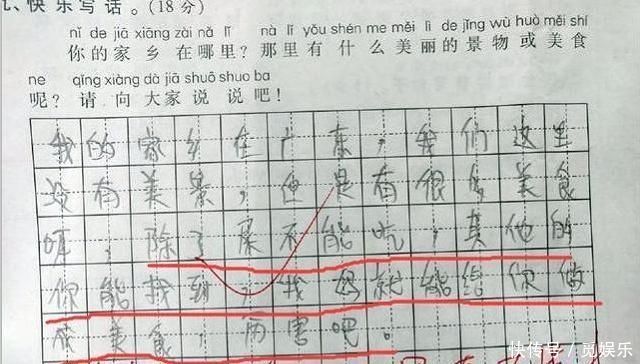 、快乐写话。(18分)
nǐ de jiā xiāng zài nǎ lǐ nà lǐ yǒu shén me měi lì de jǐng wù huò měi shí
你的家乡在哪里?那里有什么美丽的景物或美食
ne qǐng xiàng dà jiā shuō shuo ba
呢?请向大家说说吧!
我的家乡在广东,我们这里
没有美景,但是有很多美食
呀,除了屎不能吃,其他的
你能找到,我妈就能给你做
成美食,厉害吧。
快传号/觅娱乐